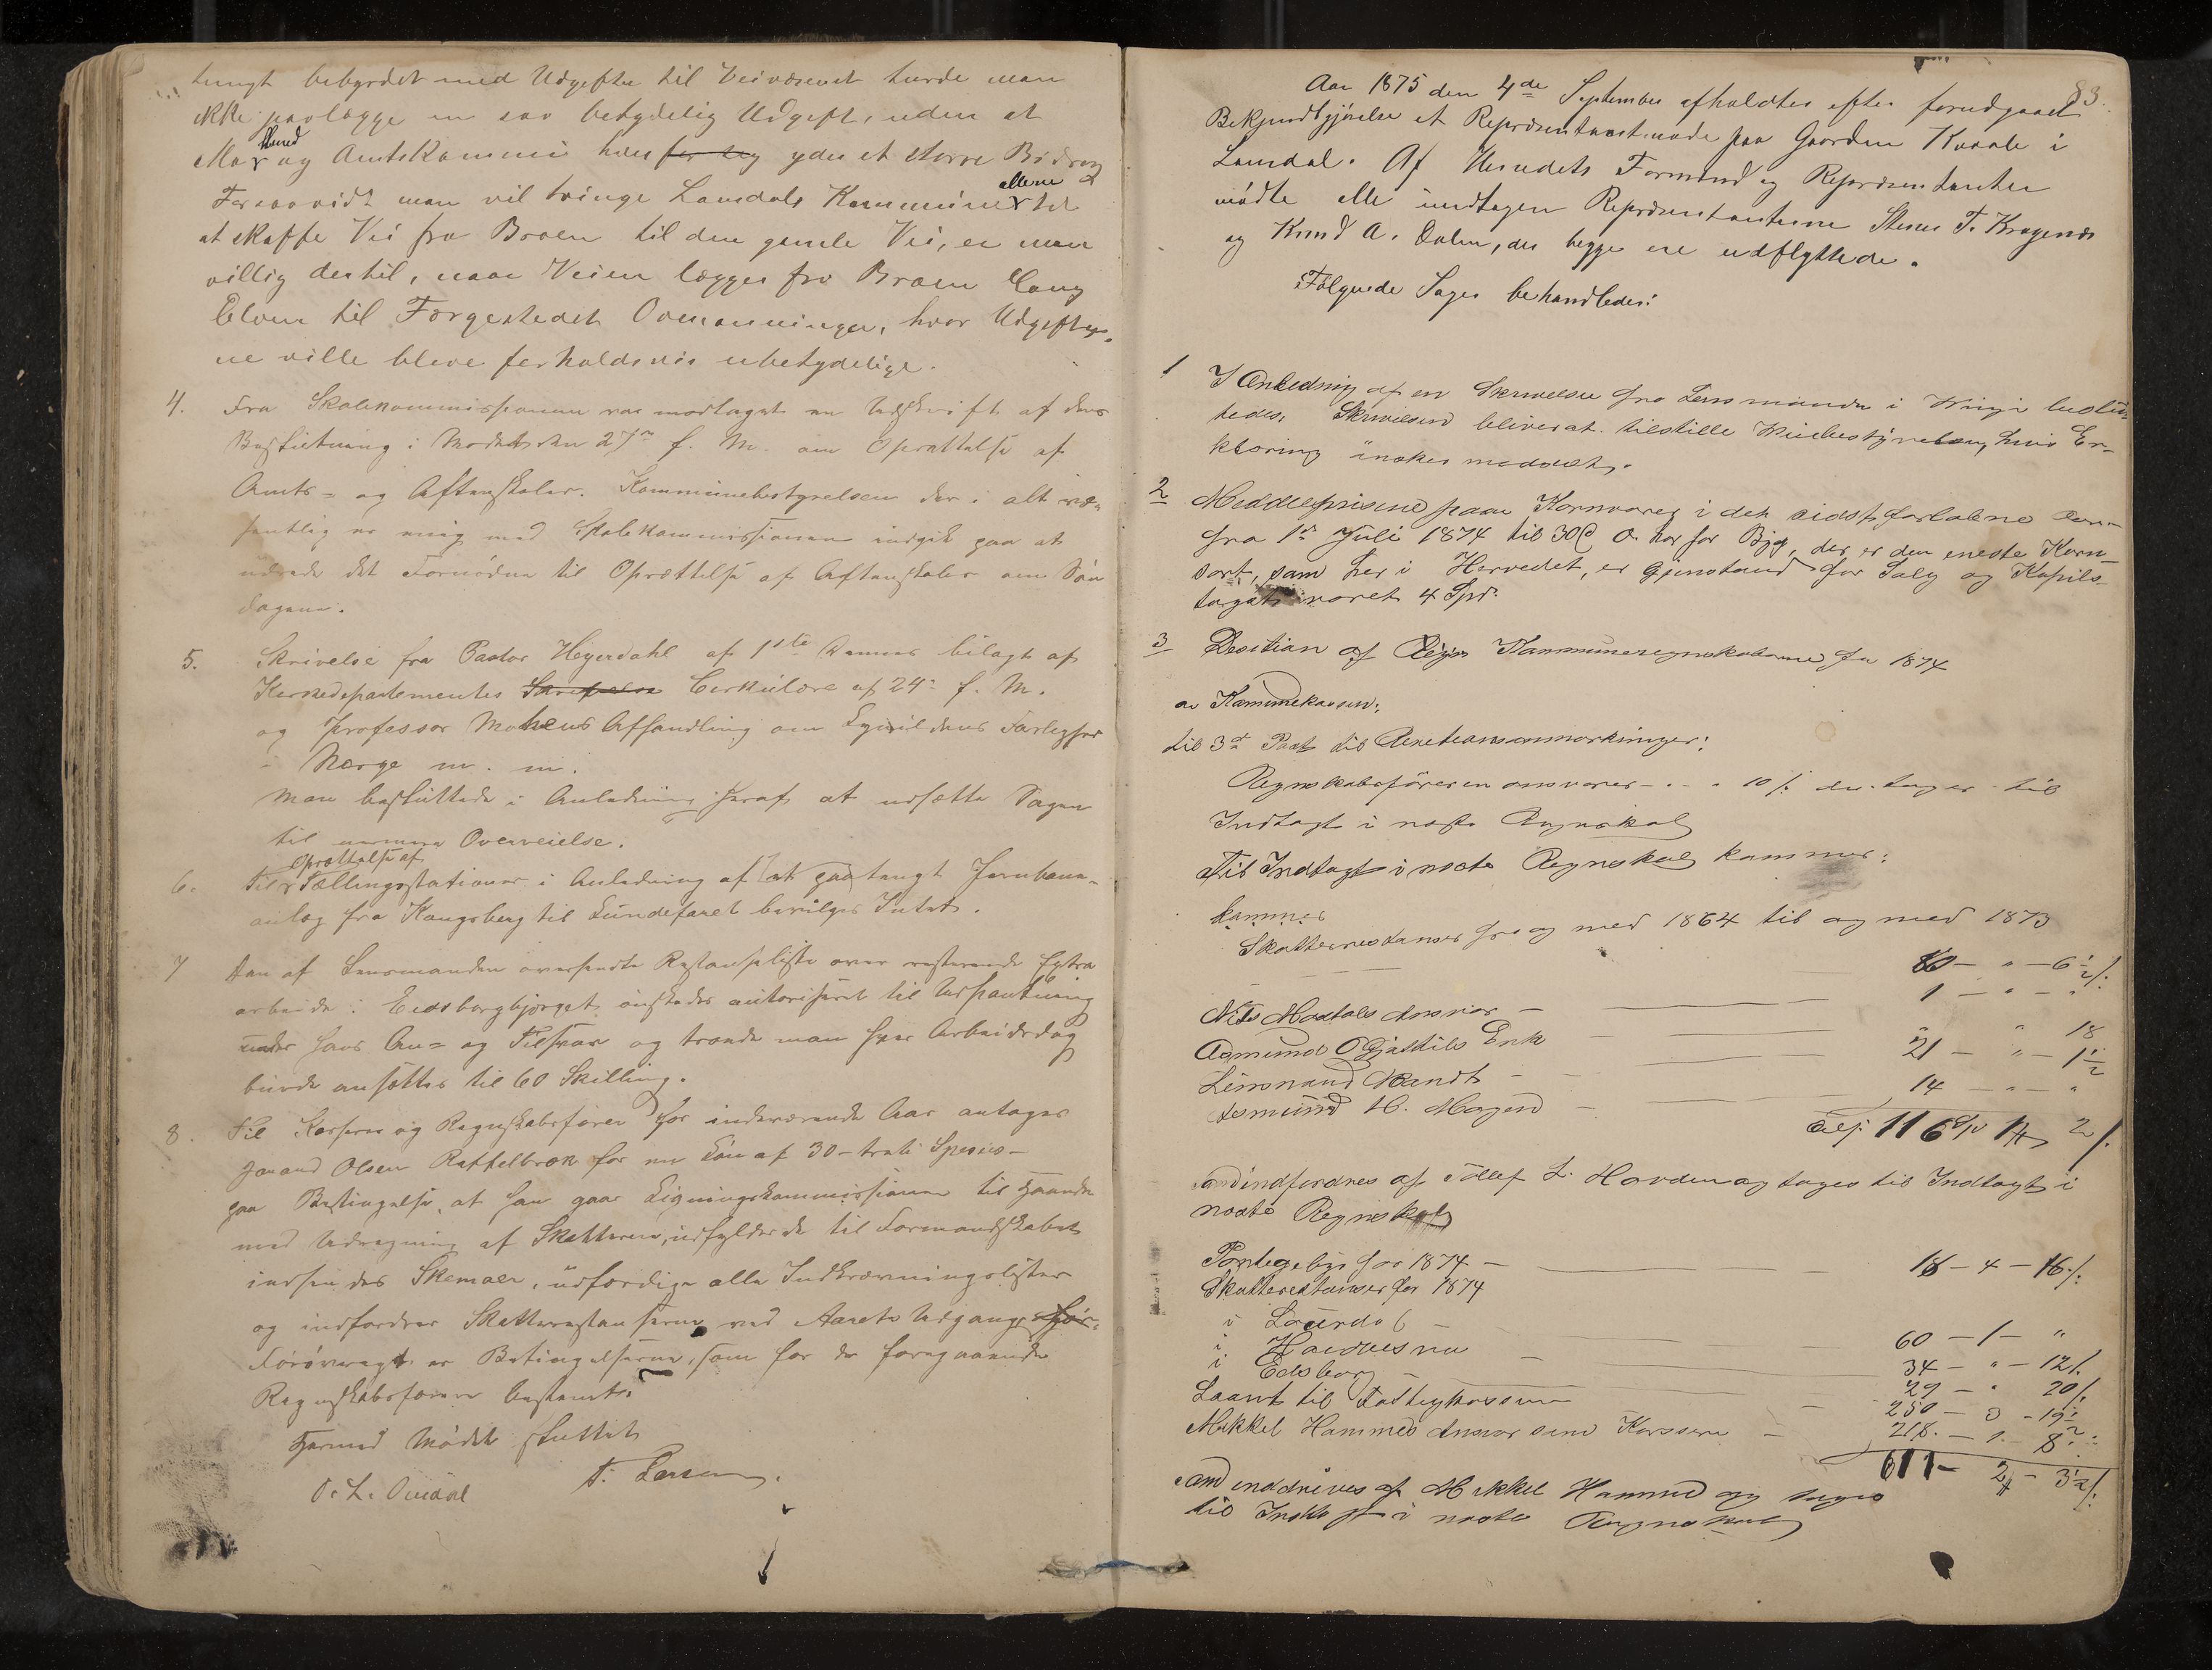 tungt bebyrdet med Udgifter til Veivæsenet turde man
ikke paalægge en saa betydelig Udgift, uden at
Mo Herred og Amtskommunen hver for sig yder et større Bidrag
Forsaavidt man vil tvinge Laurdals Kommune allene til
at skaffe Vei fra Broen til den gamle Vei, er man
villig dertil, naar Veien lægges fra Broen lang
Elven til Færgestedet Ovenanningen, hvor Udgifter-
ne ville blive forholdsvis ubetydelige.
4. Fra Skolekommissionen var modtaget en Udskrift af dens
Beslutning i Mødet den 27de f. M. om Oprettelse af
Amts- og Aftenskoler. Kommunebestyrelsen der i alt væ-
sentlig er enig med Skolekommissionen indgik paa at
udrede det Fornødne til Oprettelse af Aftenskoler om Søn
dagene.
5. Skrivelse fra Pastor Heyerdahl af 1ste dennes bilagt af
Kirkedepartementets Skrivelse Cirkulære af 24de f. M.
og Professor Mohens Afhandling om Ligvildens
i Norge m. m.
Man besluttede i Anledning heraf at udsætte Sagen
til nærmere Overveielse.
6. Til Oprettelse af Tællingsstationer i Anledning af at paatængt Jernbane-
anlæg fra Kongsberg til Lundefaret bevilges Intet.
7 Den af Lensmanden oversendte Restanseliste over resterende Extra
arbeide i Eidsborgbjerget ønskedes autoriseret til Udpantning
under hans An- og Tilsvar og troede man hver Arbeidsdag
burde ansættes til 60 Skilling.
8. Til Kasserer og Regnskabsfører for indeværende Aar antages
Jorand Olsen Raffelbrøk for en Løn af 30-treti Species-
paa Betingelse, at han gaar Ligningskommissionen til Haande
med Udregning af Skatterne, udfylder de til Formandskabet
indsendes Skemaer, udfærdige alle Indkrævningslister
og indfordrer Skatterestanserne ved Aarets Udgang. Før-
Forøvrigt er Betingelserne, som for de foregaaende
Regnskabsførere bestemt.
Hermed Mødet sluttet
O. L. Ovidal T. Larsen.
83.
Aar 1875 den 4de September afholdtes efter forudgaaet
Bekjendtgjørelse et Repræsentantmøde paa Gaarden Kvaale i
Laurdal. Af Herredets Formænd og Repræsentanter
mødte alle undtagen Repræsentanterne Stener T. Kragenæs
og Knud A. Dalen, der begge ere udflyttede.
Følgende Sager behandledes:
1 I Anledning af en Skrivelse fra Lensmanden i Vinje beslut-
tedes, Skrivelsen bliver at tilstille Veibestyrelsen, hvis Er-
klæring ønskes meddelt.
2 Middelprisene paa Kornvarer i det sidst forløbne Aar
fra 1de Juli 1874 til 30d. D. har for Byg, der er den eneste Korn-
sort, som her i Herredet, er Gjenstand for Salg og Kapits-
taxt været 4 Spd.
3 Desition af Regn Kommuneregnskaberne for 1874
a. Kommunekassen:
til 3de Post til Revitionsanmærkninger:
Regnskabsføreren ansvarer - . . 10 ß der tages til
Indtægt i næste Regnskab
Til Indtægt i næste Regnskab kommer:
kommer
Skatterestanser fra og med 1864 til og med 1873
80 - " - 6½ ß
1 - " - "
Nils Moxtals Ansvar -
Asmund O Gjattils Enk " " 18
Lensmand Randt - 21 - " - 1½
Asmund H. Mogen - 14 - " - "
Tils. 116 Spd 1 2 ß
som indfordres af Tollef L. Harden og tages til Indtægt i
næste Regnskab
Portegebyr for 1874 - 18 - 4 - 16 ß
Skatterestanser for 1874
i Laurdal 60 - 1 - "
i Høidalsmo 34 - " - 12 ß
i Edsborg 29 - " 20 ß
Laant til Fattigkassen 250 - 3 - 19
Mikkel Hammers Ansvar som Kasserer 218. - 1 - 8
611 - 2 - 3½ ß
som inddrives af Mikkel Hammer og tages
til Indtægt i næste Regnskab